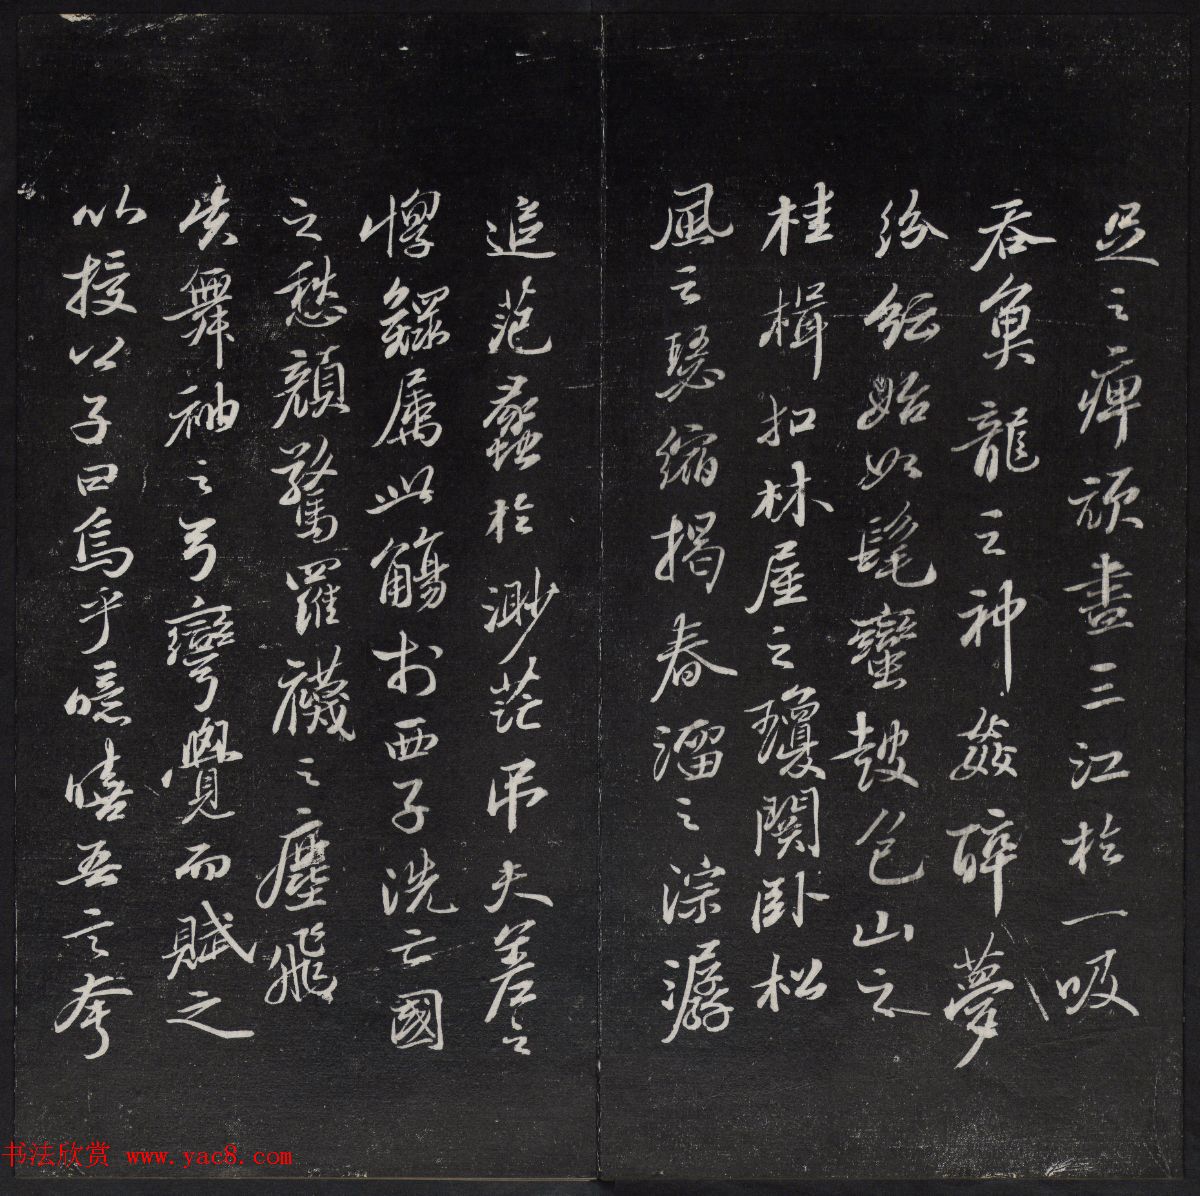 足之痺頑盡三江於一吸
吞魚龍之神姦醉夢
紛紜始如髦蠻鼓包山之
桂楫扣林屋之瓊關卧松
風之瑟縮揭春溜之淙潺
追范蠡於渺茫吊夫差之
惸鰥屬此觴於西子洗亡國
之愁顏驚羅襪之塵飛
失舞袖之弓彎覺而賦之
以授公子曰烏乎噫嘻吾言夸
书法欣赏 www.yac8.com